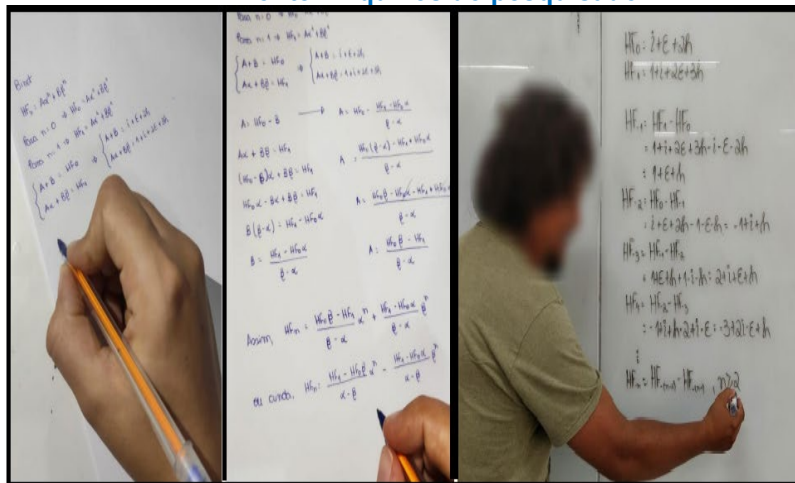 Binet
HFₙ = Aαⁿ + Bβⁿ
Para n=0 ⇒ HF₀ = Aα⁰ + Bβ⁰
Para n=1 ⇒ HF₁ = Aα¹ + Bβ¹
{ A+B = HF₀ ⇒ { A+B = i+ε+2h
{ Aα + Bβ = HF₁ { Aα+Bβ = 1+i+2ε+3h
Para n=0 ⇒ HF₀ = Aα⁰ + Bβ⁰
Para n=1 ⇒ HF₁ = Aα¹ + Bβ¹
{ A+B = HF₀ ⇒ { A+B = i+ε+2h
{ Aα+Bβ = HF₁ { Aα+Bβ = 1+i+2ε+3h
A = HF₀ - B → A = HF₀ - (HF₁ - HF₀α)/(β - α)
Aα + Bβ = HF₁ A = (HF₀(β - α) - HF₁ + HF₀α)/(β - α)
(HF₀ - B)α + Bβ = HF₁
HF₀α - Bα + Bβ = HF₁ A = (HF₀β - HF₀α - HF₁ + HF₀α)/(β - α)
B(β - α) = HF₁ - HF₀α
B = (HF₁ - HF₀α)/(β - α) A = (HF₀β - HF₁)/(β - α)
Assim HFₙ = (HF₀β - HF₁)/(β - α) αⁿ + (HF₁ - HF₀α)/(β - α) βⁿ
ou ainda, HFₙ = (HF₁ - HF₀β)/(α - β) αⁿ - (HF₁ - HF₀α)/(α - β) βⁿ
HF₀ = i+ε+2h
HF₁ = 1+i+2ε+3h
HF₋₁ = HF₁ - HF₀
= 1+i+2ε+3h-i-ε-2h
= 1+ε+h
HF₋₂ = HF₀ - HF₋₁
= i+ε+2h-1-ε-h = -1+i+h
HF₋₃ = HF₋₁ - HF₋₂
= 1+ε+h+1-i-h = 2+i+ε+h
= -1+i+h-2+i-ε = -3+2i-ε+h